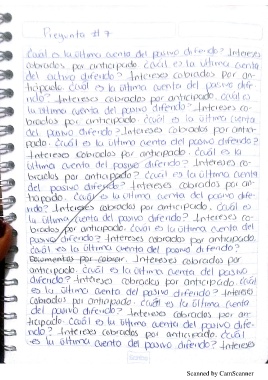 Pregunta # 7
¿Cuál es la última cuenta del pasivo diferido? Intereses
cobrados por anticipado ¿cuál es la última cuenta
del activo diferido? Intereses cobrados por an-
ticipado ¿cuál es la última cuenta del pasivo dife-
rido? Intereses cobrados por anticipado. ¿cuál es
la última cuenta del pasivo diferido? Intereses co-
brados por anticipado. ¿cuál es la última cuenta
del pasivo diferido? Intereses cobrados por antici-
pado. ¿cuál es la última cuenta del pasivo diferido?
Intereses cobrados por anticipado ¿cuál es la
última cuenta del pasivo diferido? Intereses co-
brados por anticipado? ¿cuál es la última cuenta
del pasivo diferido? Intereses cobrados por an-
ticipado. ¿cuál es la última cuenta del pasivo dife-
rido? Intereses cobrados por anticipado ¿cuál es
la última cuenta del pasivo diferido? Intereses co-
brados por anticipado. ¿cuál es la última cuenta del
pasivo diferido? Intereses cobrados por anticipado.
¿cuál es la última cuenta del pasivo diferido?
Documentos por cobrar. Intereses cobrados por
anticipado. ¿cuál es la última cuenta del pasivo
diferido? Intereses cobrados por anticipado ¿cuál
es la última cuenta del pasivo diferido? Intereses
cobrados por anticipado. ¿cuál es la última cuenta
del pasivo diferido? Intereses cobrados por an-
ticipado ¿cuál es la última cuenta del pasivo dife-
rido? Intereses cobrados por anticipado ¿cuál
es la última cuenta del pasivo diferido? Intereses
Scanned by CamScanner